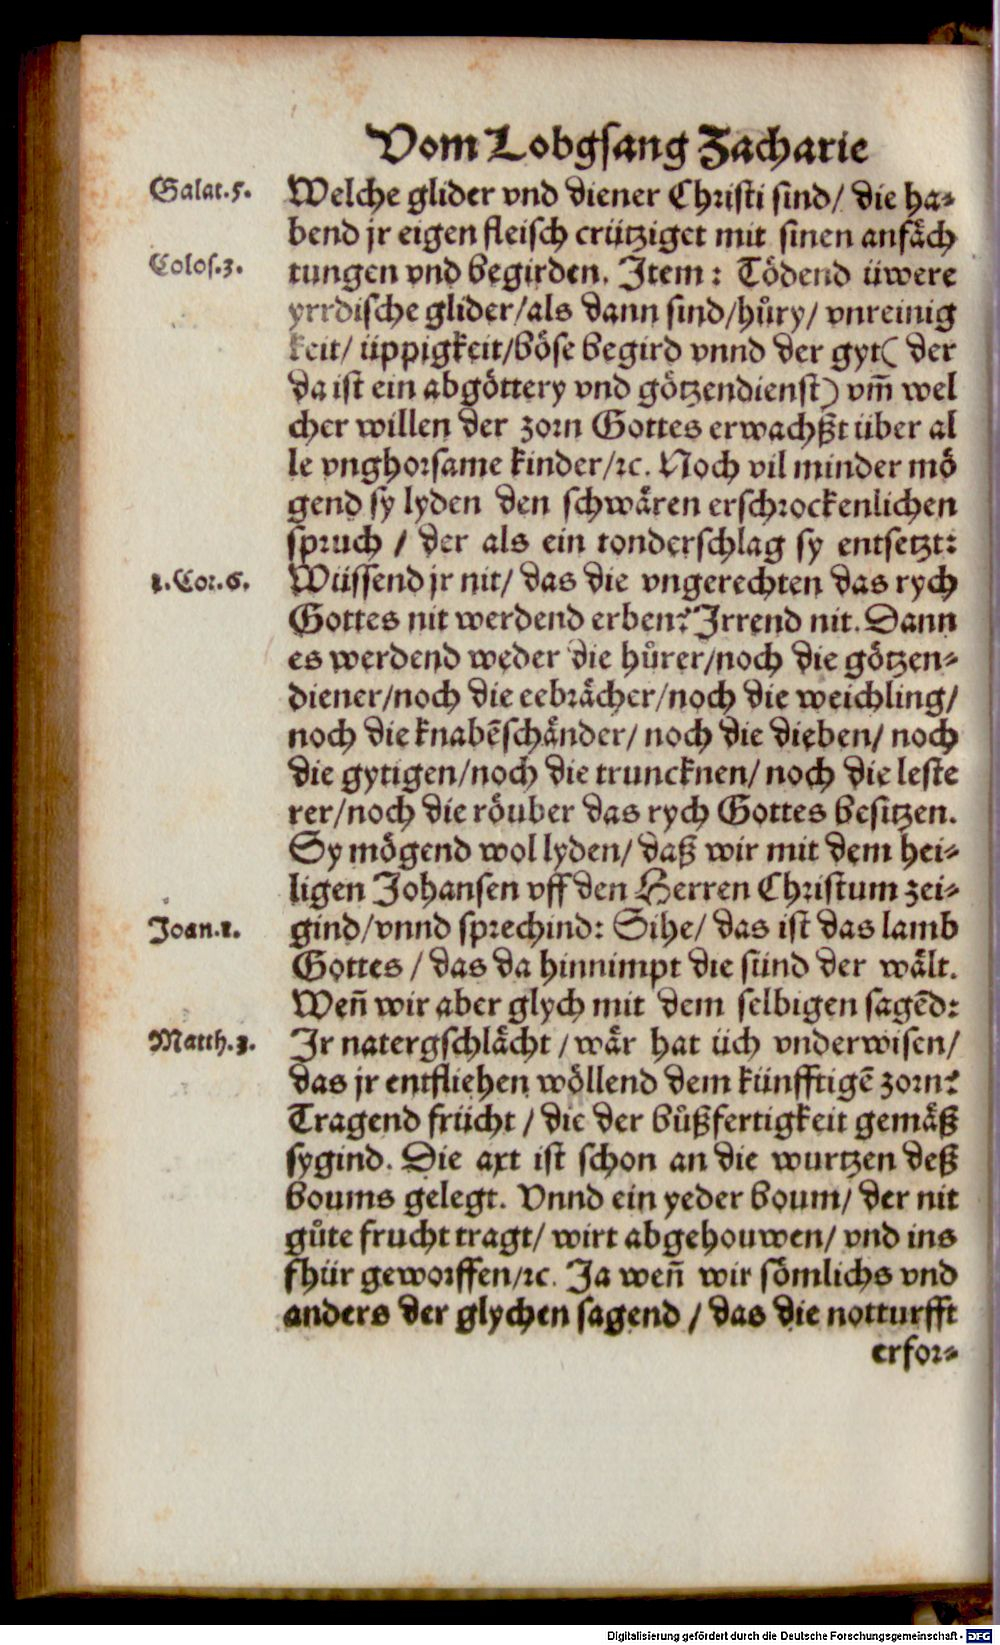 Vom Lobgsang Zacharie
Galat.5. Welche glider vnd diener Christi sind/ die ha-
bend jr eigen fleisch crütziget mit sinen anfäch
Colos.3. tungen vnd begirden. Item: Tödend üwere
yrrdische glider/als dann sind/hůry/ vnreinig
keit/ üppigkeit/böse begird vnnd der gyt( der
da ist ein abgöttery vnd götzendienst) vm̄ wel
cher willen der zorn Gottes erwachßt über al
le vnghorsame kinder/ꝛc. Noch vil minder mö
gend sy lyden den schwären erschrockenlichen
spruch / der als ein tonderschlag sy entsetzt:
1.Cor.6. Wüssend jr nit/ das die vngerechten das rych
Gottes nit werdend erben? Irrend nit. Dann
es werdend weder die hůrer/noch die götzen-
diener/noch die eebrächer/noch die weichling/
noch die knabēschänder/ noch die dieben/ noch
die gytigen/noch die truncknen/ noch die leste
rer/noch die röuber das rych Gottes besitzen.
Sy mögend wol lyden/ daß wir mit dem hei-
ligen Johansen vff den Herren Christum zei-
Joan.1. gind/vnnd sprechind: Sihe/ das ist das lamb
Gottes / das da hinnimpt die sünd der wält.
Weñ wir aber glych mit dem selbigen sagēd:
Matth.3. Ir natergschlächt / wär hat üch vnderwisen/
das jr entfliehen wöllend dem künfftigē zorn?
Tragend frücht / die der bůßfertigkeit gemäß
sygind. Die axt ist schon an die wurtzen deß
boums gelegt. Vnnd ein yeder boum/ der nit
gůte frucht tragt/ wirt abgehouwen/ vnd ins
fhür geworffen/ꝛc. Ja weñ wir sömlichs vnd
anders der glychen sagend / das die notturfft
erfor-
Digitalisierung gefördert durch die Deutsche Forschungsgemeinschaft - DFG